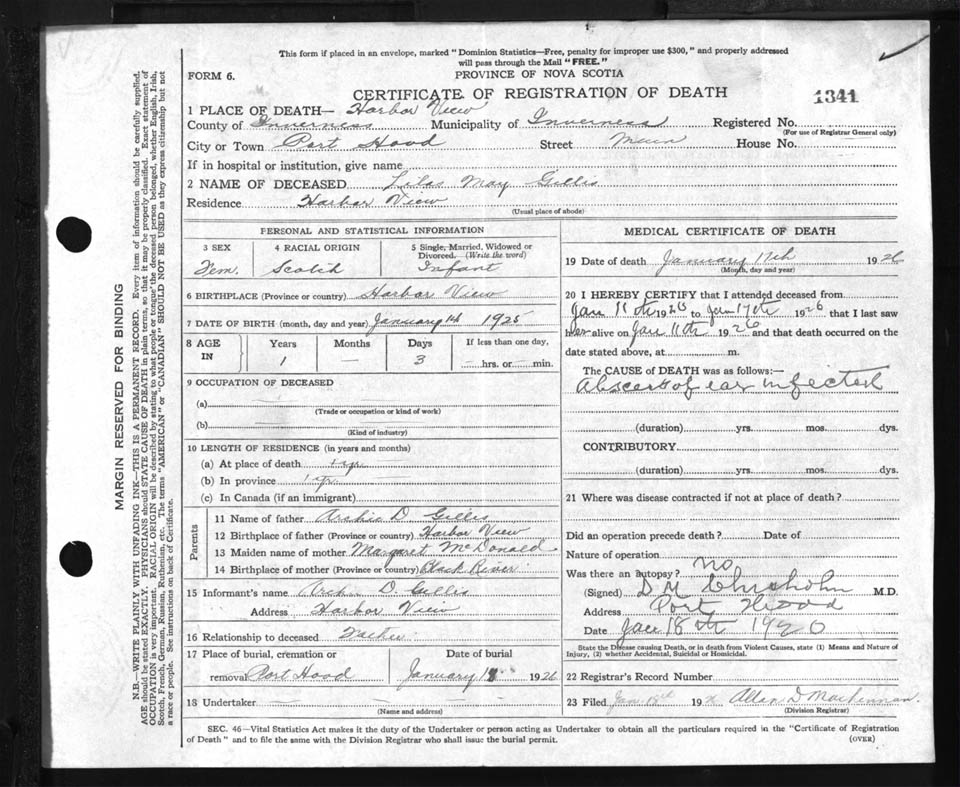 This form if placed in an envelope, marked "Dominion Statistics—Free, penalty for improper use $300," and properly addressed
will pass through the Mail "FREE."
FORM 6.
PROVINCE OF NOVA SCOTIA
CERTIFICATE OF REGISTRATION OF DEATH
1341
1 PLACE OF DEATH— Harbor View
County of Inverness Municipality of Inverness Registered No.
(For use of Registrar General only)
City or Town Port Hood Street Main House No.
If in hospital or institution, give name
2 NAME OF DECEASED Lilas May Gillis
Residence Harbor View
(Usual place of abode)
PERSONAL AND STATISTICAL INFORMATION
3 SEX 4 RACIAL ORIGIN 5 Single, Married, Widowed or
Divorced. (Write the word)
Fem. Scotch Infant
6 BIRTHPLACE (Province or country) Harbor View
7 DATE OF BIRTH (month, day and year) January 1925
8 AGE IN Years Months Days If less than one day,
1 — 3 hrs. or min.
9 OCCUPATION OF DECEASED
(a)
(Trade or occupation or kind of work)
(b)
(Kind of industry)
10 LENGTH OF RESIDENCE (in years and months)
(a) At place of death 1 yr.
(b) In province 1 yr.
(c) In Canada (if an immigrant)
Parents
11 Name of father Archie D Gillis
12 Birthplace of father (Province or country) Harbor View
13 Maiden name of mother Margaret McDonald
14 Birthplace of mother (Province or country) Black River
15 Informant's name Archie D. Gillis
Address Harbor View
16 Relationship to deceased Father
17 Place of burial, cremation or Date of burial
removal Port Hood January 1926
18 Undertaker
(Name and address)
MEDICAL CERTIFICATE OF DEATH
19 Date of death January 17th 1926
(Month, day and year)
20 I HEREBY CERTIFY that I attended deceased from
Jan 11th 1926 to Jan 17th 1926 that I last saw
her alive on Jan 11th 1926 and that death occurred on the
date stated above, at m.
The CAUSE of DEATH was as follows:—
Abscess of ear infected
(duration) yrs. mos. dys.
CONTRIBUTORY
(duration) yrs. mos. dys.
21 Where was disease contracted if not at place of death?
Did an operation precede death? Date of
Nature of operation
Was there an autopsy? no
(Signed) D M Chisholm M.D.
Address Port Hood
Date Jan 18th 1920
State the Disease causing Death, or in death from Violent Causes, state (1) Means and Nature of
Injury, (2) whether Accidental, Suicidal or Homicidal.
22 Registrar's Record Number
23 Filed Jan 19 Allan D MacLennan
(Division Registrar)
SEC. 46—Vital Statistics Act makes it the duty of Undertaker or person acting as Undertaker to obtain all the particulars required in the "Certificate of Registration
of Death" and to file the same with the Division Registrar who shall issue the burial permit. (OVER)
MARGIN RESERVED FOR BINDING
N.B.—WRITE PLAINLY WITH UNFADING INK—THIS IS A PERMANENT RECORD. Every item of information should be carefully supplied.
AGE should be stated EXACTLY. PHYSICIANS should STATE CAUSE OF DEATH in plain terms, so that it may be properly classified. Exact statement of
OCCUPATION is very important. RACIAL ORIGIN will be described by stating to what people or tongue the deceased person belonged, whether English, Irish,
Scotch, French, German, Russian, Ruthenian, etc. The terms "AMERICAN" or "CANADIAN" SHOULD NOT BE USED as they express citizenship but not
a race or people. See instructions on back of Certificate.